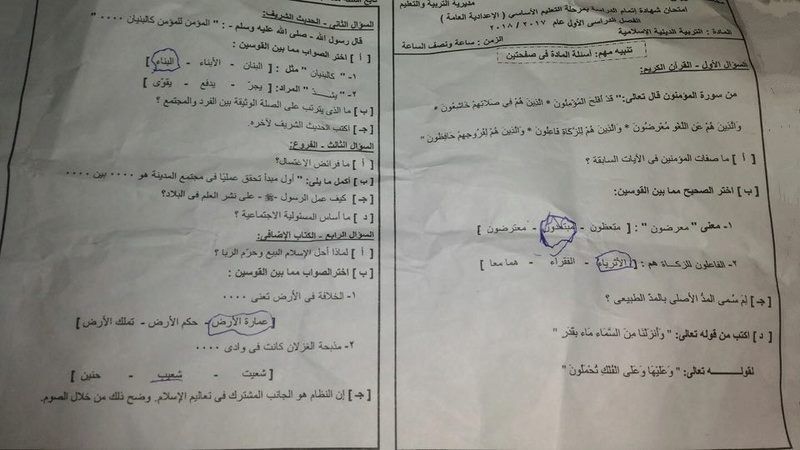 مديرية التربية والتعليم
امتحان شهادة إتمام الدراسة بمرحلة التعليم الأساسى ( الإعدادية العامة )
الفصل الدراسى الأول عام ٢٠١٧ / ٢٠١٨
المادة : التربية الدينية الإسلامية
الزمن : ساعة ونصف الساعة
تنبيه مهم: أسئلة المادة فى صفحتين
السؤال الأول - القرآن الكريم:
من سورة المؤمنون قال تعالى:" قَدْ أَفْلَحَ الْمُؤْمِنُونَ * الَّذِينَ هُمْ فِي صَلَاتِهِمْ خَاشِعُونَ *
وَالَّذِينَ هُمْ عَنِ اللَّغْوِ مُعْرِضُونَ * وَالَّذِينَ هُمْ لِلزَّكَاةِ فَاعِلُونَ * وَالَّذِينَ هُمْ لِفُرُوجِهِمْ حَافِظُونَ "
[ أ ] ما صفات المؤمنين فى الآيات السابقة ؟
[ ب ] اختر الصحيح مما بين القوسين:
١- معنى " معرضون " : [ متعظون - مبتعدون - معترضون ]
٢- الفاعلون للزكاة هم : [ الأثرياء - الفقراء - هما معا ]
[ جـ ] لِمَ سُمى المدُّ الأصلى بالمدِّ الطبيعى ؟
[ د ] اكتب من قوله تعالى: " وَأَنزَلْنَا مِنَ السَّمَاءِ مَاءً بِقَدَرٍ "
لقولـــــه تعالى: " وَعَلَيْهَا وَعَلَى الْفُلْكِ تُحْمَلُونَ "
السؤال الثانى - الحديث الشريف:
قال رسول الله - صلى الله عليه وسلم - : " المؤمن للمؤمن كالبنيان ٠٠٠٠ "
[ أ ] اختر الصواب مما بين القوسين :
١- " كالبنيان " مثل : [ البنان - الأبناء - البناء ]
٢- " يشـد " المراد: [ يجرّ - يدفع - يقوّى ]
[ ب ] ما الذى يترتب على الصلة الوثيقة بين الفرد والمجتمع ؟
[ جـ ] اكتب الحديث الشريف لآخره.
السؤال الثالث - الفروع:
[ أ ] ما فرائض الاغتسال؟
[ ب ] أكمل ما يلى: " أول مبدأ تحقق عمليًا فى مجتمع المدينة هو ٠٠٠٠ بين ٠٠٠٠
[ جـ ] كيف عمل الرسول - ﷺ - على نشر العلم فى البلاد؟
[ د ] ما أساس المسئولية الاجتماعية ؟
السؤال الرابع - الكتاب الإضافى:
[ أ ] لماذا أحل الإسلام البيع وحرّم الربا ؟
[ ب ] اختر الصواب مما بين القوسين :
١- الخلافة فى الأرض تعنى ٠٠٠٠
[ عمارة الأرض - حكم الأرض - تملك الأرض ]
٢- مذبحة الغزلان كانت فى وادى ٠٠٠٠
[ شعيت - شعيب - حنين ]
[ جـ ] إن النظام هو الجانب المشترك فى تعاليم الإسلام. وضح ذلك من خلال الصوم.